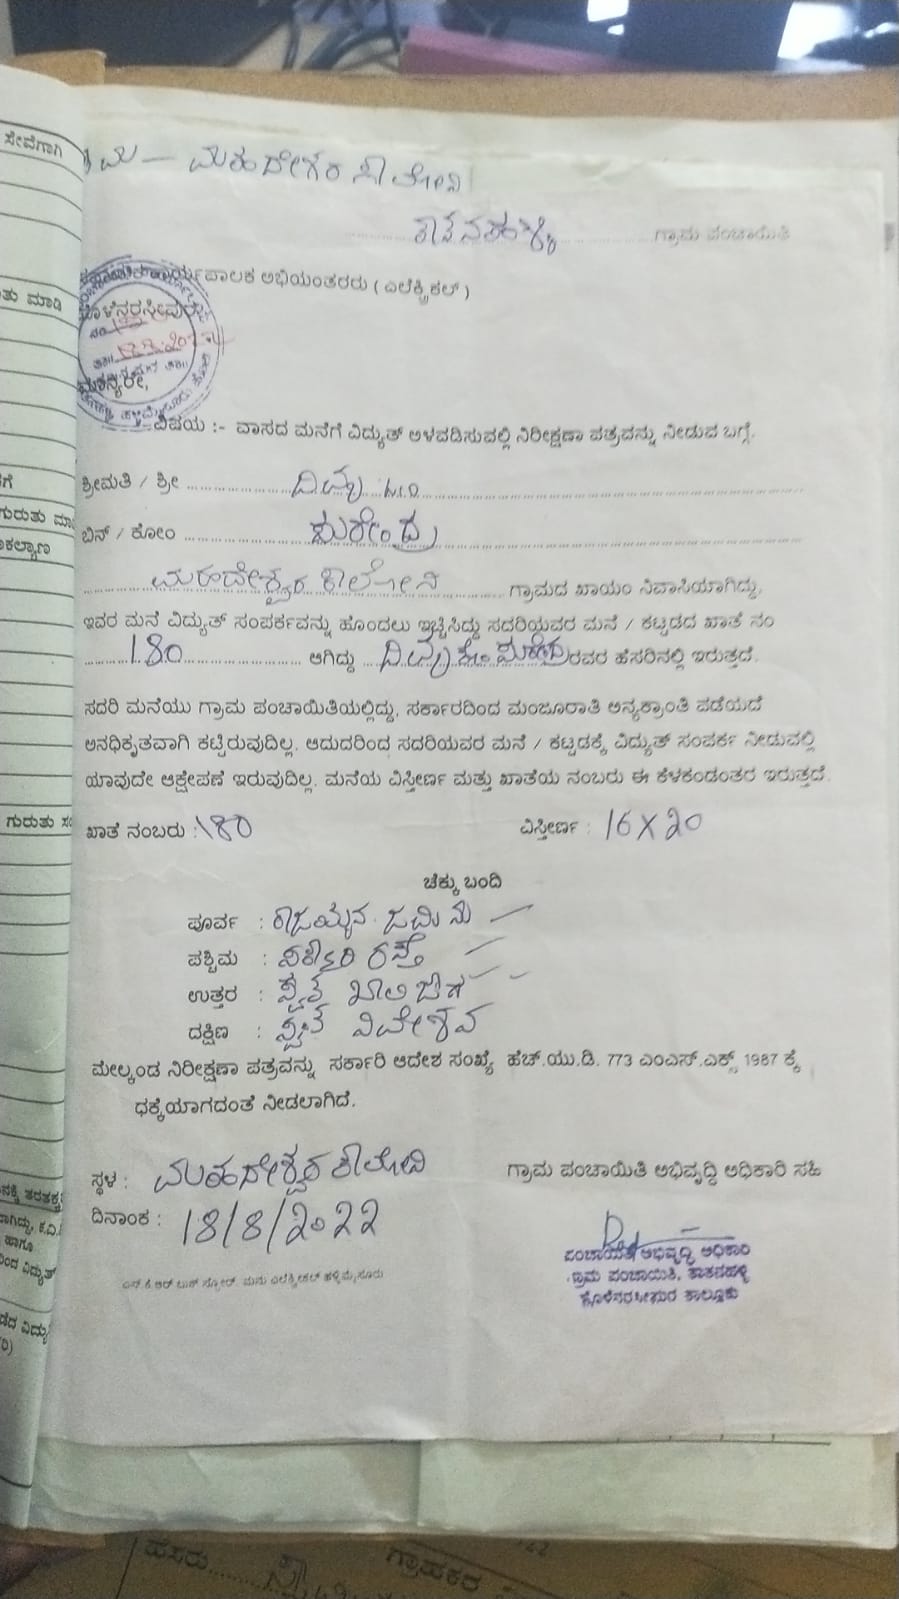 ಸೇವೆಗಾಗಿ
ಮಹದೇಶ್ವರ ಕಾಲೋನಿ
ಗ್ರಾಮ ಪಂಚಾಯಿತಿ
ಕಾರ್ಯಪಾಲಕ ಅಭಿಯಂತರರು ( ಎಲೆಕ್ಟ್ರಿಕಲ್ )
ಹೊಳೆನರಸೀಪುರ
ಮಾನ್ಯರೇ,
ವಿಷಯ :- ವಾಸದ ಮನೆಗೆ ವಿದ್ಯುತ್ ಅಳವಡಿಸುವಲ್ಲಿ ನಿರೀಕ್ಷಣಾ ಪತ್ರವನ್ನು ನೀಡುವ ಬಗ್ಗೆ.
ಶ್ರೀಮತಿ / ಶ್ರೀ ದಿವ್ಯ
ಬಿನ್ / ಕೋಂ ಸುರೇಂದ್ರ
ಮಹದೇಶ್ವರ ಕಾಲೋನಿ ಗ್ರಾಮದ ಖಾಯಂ ನಿವಾಸಿಯಾಗಿದ್ದು,
ಇವರ ಮನೆ ವಿದ್ಯುತ್ ಸಂಪರ್ಕವನ್ನು ಹೊಂದಲು ಇಚ್ಛಿಸಿದ್ದು ಸದರಿಯವರ ಮನೆ / ಕಟ್ಟಡದ ಖಾತೆ ನಂ
180 ಆಗಿದ್ದು ದಿವ್ಯ ಕೋಂ ಸುರೇಂದ್ರ ರವರ ಹೆಸರಿನಲ್ಲಿ ಇರುತ್ತದೆ.
ಸದರಿ ಮನೆಯು ಗ್ರಾಮ ಪಂಚಾಯಿತಿಯಲ್ಲಿದ್ದು, ಸರ್ಕಾರದಿಂದ ಮಂಜೂರಾತಿ ಅನ್ಯಕ್ರಾಂತಿ ಪಡೆಯದೆ
ಅನಧಿಕೃತವಾಗಿ ಕಟ್ಟಿರುವುದಿಲ್ಲ. ಆದುದರಿಂದ ಸದರಿಯವರ ಮನೆ / ಕಟ್ಟಡಕ್ಕೆ ವಿದ್ಯುತ್ ಸಂಪರ್ಕ ನೀಡುವಲ್ಲಿ
ಯಾವುದೇ ಆಕ್ಷೇಪಣೆ ಇರುವುದಿಲ್ಲ. ಮನೆಯ ವಿಸ್ತೀರ್ಣ ಮತ್ತು ಖಾತೆಯ ನಂಬರು ಈ ಕೆಳಕಂಡಂತರ ಇರುತ್ತದೆ.
ಖಾತೆ ನಂಬರು : 180 ವಿಸ್ತೀರ್ಣ : 16 X 20
ಚೆಕ್ಕು ಬಂದಿ
ಪೂರ್ವ : ರಾಜಯ್ಯನ ಜಮೀನು
ಪಶ್ಚಿಮ : ಸರ್ಕಾರಿ ರಸ್ತೆ
ಉತ್ತರ : ಸ್ವಂತ ಖಾಲಿ ಜಾಗ
ದಕ್ಷಿಣ : ಸ್ವಂತ ನಿವೇಶನ
ಮೇಲ್ಕಂಡ ನಿರೀಕ್ಷಣಾ ಪತ್ರವನ್ನು ಸರ್ಕಾರಿ ಆದೇಶ ಸಂಖ್ಯೆ ಹೆಚ್.ಯು.ಡಿ. 773 ಎಂಎಸ್.ಎಕ್ಸ್ 1987 ಕ್ಕೆ
ಧಕ್ಕೆಯಾಗದಂತೆ ನೀಡಲಾಗಿದೆ.
ಸ್ಥಳ : ಮಹದೇಶ್ವರ ಕಾಲೋನಿ
ಗ್ರಾಮ ಪಂಚಾಯಿತಿ ಅಭಿವೃದ್ಧಿ ಅಧಿಕಾರಿ ಸಹಿ
ದಿನಾಂಕ : 18/8/2022
ಪಂಚಾಯಿತಿ ಅಭಿವೃದ್ಧಿ ಅಧಿಕಾರಿ
ಗ್ರಾಮ ಪಂಚಾಯಿತಿ, ತಾತನಹಳ್ಳಿ
ಹೊಳೆನರಸೀಪುರ ತಾಲ್ಲೂಕು
ಹೆಸರು
ಗ್ರಾಹಕರ